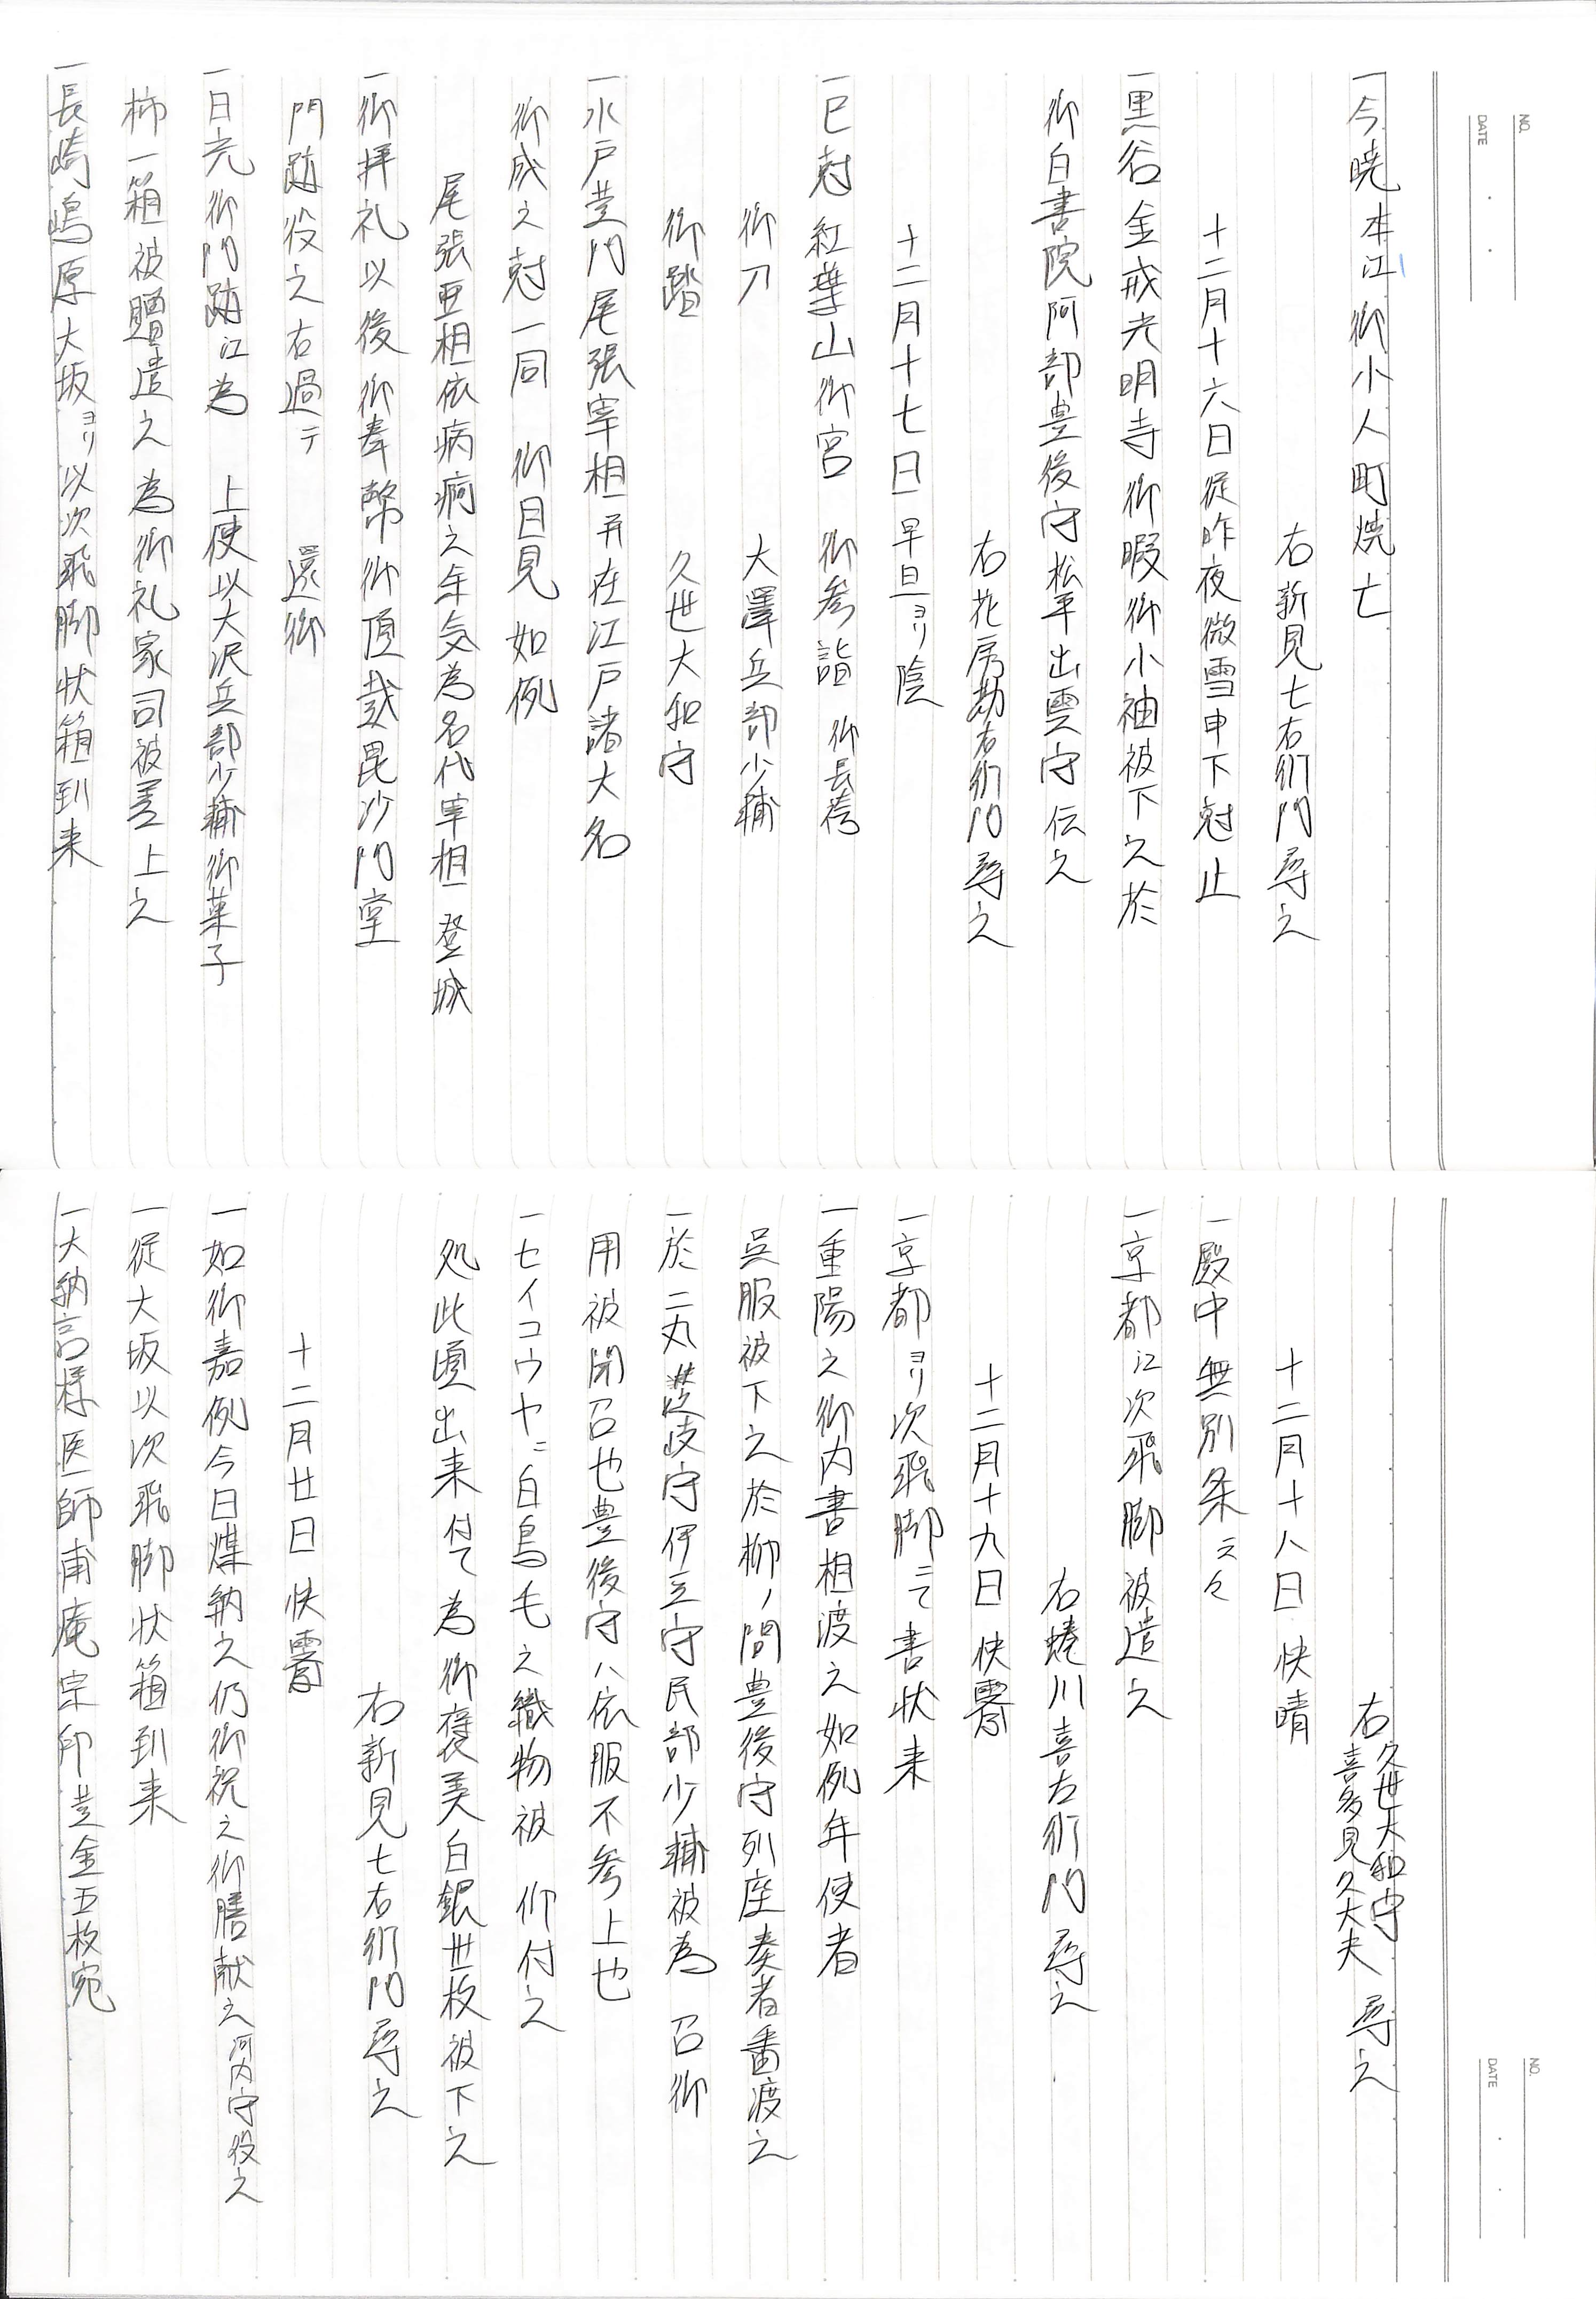 NO.
DATE
一今暁本江御小人町焼亡
右新見七右衛門尋之
十二月十六日従昨夜微雪申下尅止
一黒谷金戒光明寺御暇御小袖被下之於
御白書院阿部豊後守松平出雲守伝之
右花房勘右衛門尋之
十二月十七日早旦ヨリ陰
一巳尅紅葉山御宮 御参詣 御長袴
御刀 大澤兵部少輔
御踏 久世大和守
一水戸黄門尾張宰相并在江戸諸大名
御成之尅一同 御目見如例
尾張亜相依病痾之年気為名代宰相登城
一御拝礼以後御奉幣御頂戴毘沙門堂
門跡役之右過テ 還御
一日光御門跡江為 上使以大沢兵部少輔御菓子
柿一箱被贈遣之為御礼家司被差上之
一長崎嶋原大坂ヨリ以次飛脚状箱到来
NO.
DATE
右久世大和守 喜多見久大夫 尋之
十二月十八日 快晴
一殿中無別条云々
一京都江次飛脚被遣之
右蜷川喜左衛門尋之
十二月十九日 快霽
一京都ヨリ次飛脚ニて書状来
一重陽之御内書相渡之如例年使者
呉服被下之於柳ノ間豊後守列座奏者番渡之
一於二丸讃岐守伊豆守民部少輔被為 召御
用被聞召也豊後守ハ依服不参上也
一セイコウヤニ白鳥毛之織物被 仰付之
処此頃出来付て為御褒美白銀卅枚被下之
右新見七右衛門尋之
十二月廿日 快霽
一如御嘉例今日煤納之仍御祝之御膳献之河内守役之
一従大坂以次飛脚状箱到来
一大納言様医師甫庵宗印黄金五枚宛